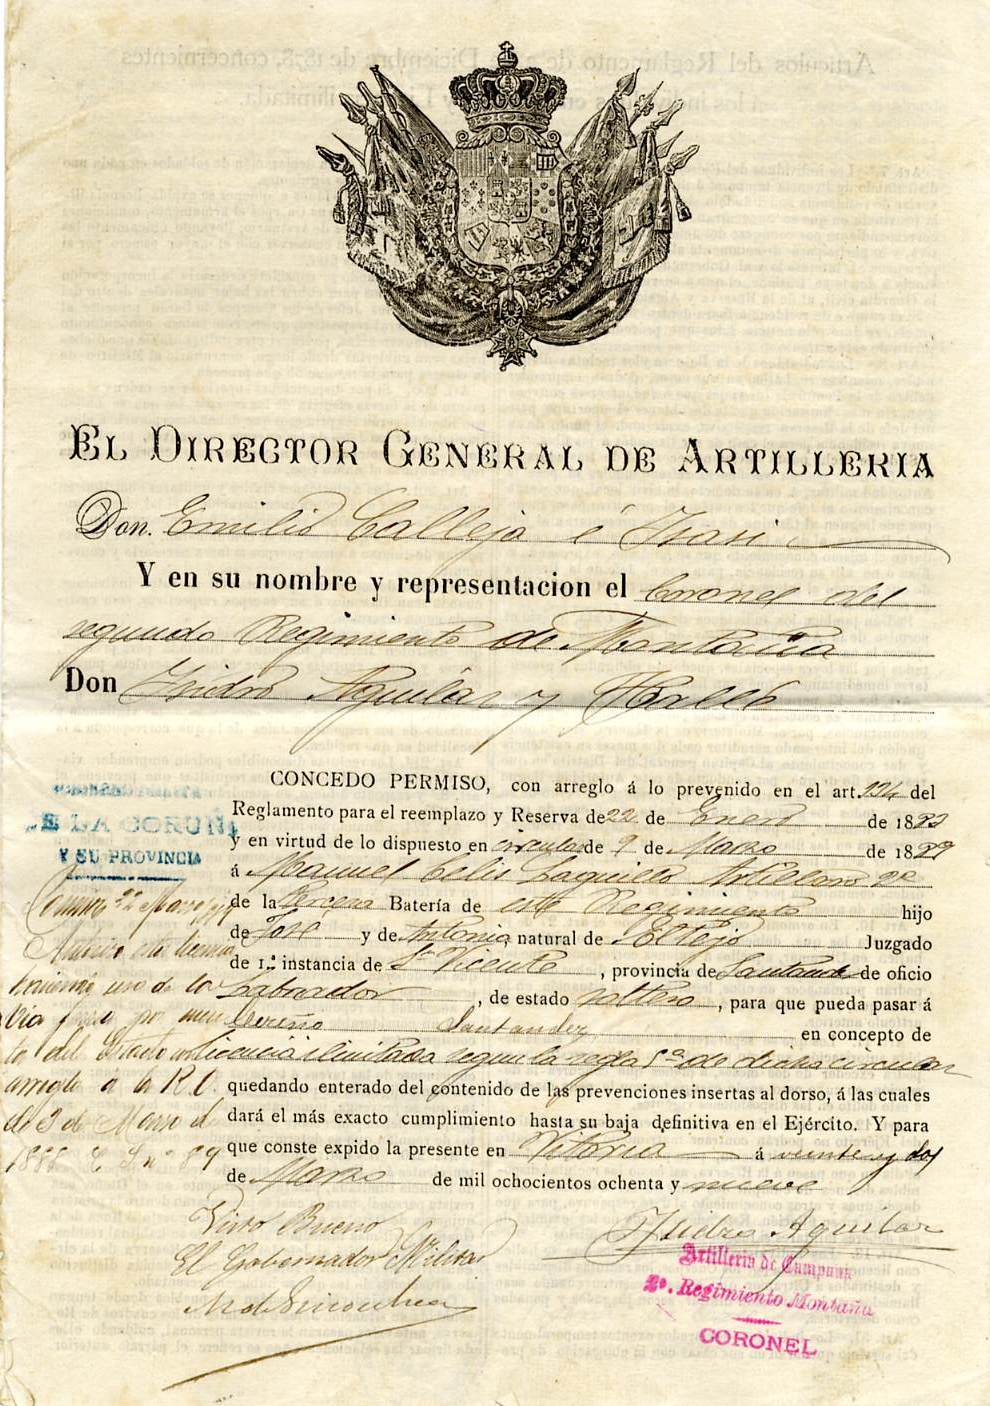 EL DIRECTOR GENERAL DE ARTILLERIA
Don. Emilio Calleja é Isasi
Y en su nombre y representacion el Coronel del
segundo Regimiento de Montaña
Don Isidro Aguilar y
CONCEDO PERMISO, con arreglo á lo prevenido en el art. 234 del
Reglamento para el reemplazo y Reserva de 22 de Enero de 1883
y en virtud de lo dispuesto en circular de 9 de Marzo de 1889
á Manuel Celis Artillero 2º
de la Tercera Batería de este Regimiento hijo
de José y de Antonia natural de Juzgado
de 1.ª instancia de Sn Vicente, provincia de Santander de oficio
Labrador, de estado soltero, para que pueda pasar á
Santander en concepto de
licencia ilimitada segun la regla 5ª de dicha circular
quedando enterado del contenido de las prevenciones insertas al dorso, á las cuales
dará el más exacto cumplimiento hasta su baja definitiva en el Ejército. Y para
que conste expido la presente en Vitoria á veinte y dos
de Marzo de mil ochocientos ochenta y nueve
DE LA CORUÑA
Y SU PROVINCIA
de la
por
to del
arreglo á la R.O.
de 2 de Marzo de
1888 C. L. nº 89
Visto Bueno
El Gobernador Militar
Isidro Aguilar
Artilleria de Campaña
2º. Regimiento Montaña
CORONEL